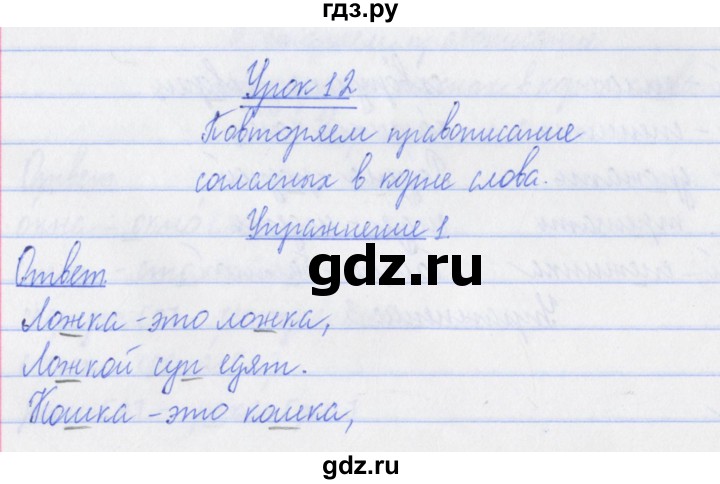 гдз.ру
Урок 12
Повторяем правописание
согласных в корне слова.
Упражнение 1.
gdz.ru
Ответ.
Ложка - это ложка,
Ложкой суп едят.
Кошка - это кошка,
gdz.ru